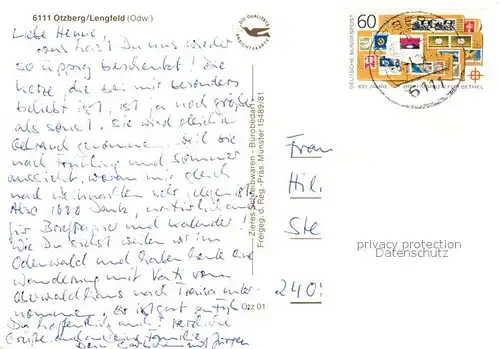 6111 Otzberg/Lengfeld (Odw.)
DIE QUALITÄTS ANSICHTSKARTE
Liebe Henne
was hast Du uns wieder
so üppig beschenkt! Die
Kerze die bei mir besonders
beliebt ist, ist ja noch größer
als sonst. Sie wird gleich in
Gebrauch genommen, weil sie
nach Frühling und Sommer
aussieht, woran mir gleich
nach Weihnachten sehr liegen ist.
Also 1000 Dank, natürlich auch
für Briefpapier und Kalender!
Wie Du siehst weilen wir im
Odenwald und haben heute eine
Wanderung mit Vati vom
nach Traisa unter-
nommen. Es ist gut
Du hoffentlich auch! Herzliche
Grüße und an eine Familie
Dein mit Jürgen
Zieres Schreibwaren - Bürobedarf
Freigeg. d. Reg.-Präs. Münster 15489/81
Otz 01
60
DEUTSCHE BUNDESPOST
100 JAHRE BRIEFMARKEN FÜR BETHEL
Frau
Hil
Ste
240
privacy protection
Datenschutz